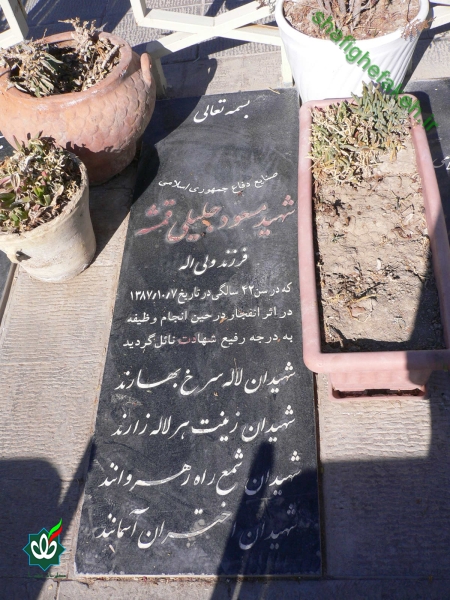 بسمه تعالی
صنایع دفاع جمهوری اسلامی
شهید مسعود جلیلی قمشه
فرزند ولی اله
که در سن ۴۲ سالگی در تاریخ ۱۳۸۷٫۱۰٫۷
در اثر انفجار در حین انجام وظیفه
به درجه رفیع شهادت نائل گردید
شهیدان لاله سرخ بهارند
شهیدان زینت هر لاله زارند
شهیدان شمع راه رهروانند
شهیدان اختران آسمانند